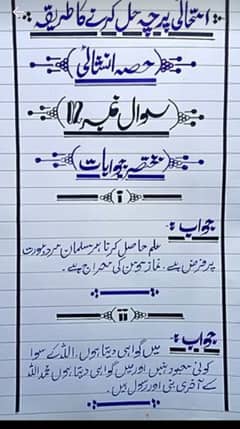 امتحانی پرچہ حل کرنے کا طریقہ
حصہ انشائی
سوال نمبر 2
مختصر جوابات
i
جواب:
علم حاصل کرنا ہر مسلمان مرد عورت
پر فرض ہے۔ نماز مومن کی معراج ہے۔
ii
جواب:
میں گواہی دیتا ہوں، اللہ کے سوا
کوئی معبود نہیں اور میں گواہی دیتا ہوں محمد اللہ
کے آخری نبی اور رسول ہیں۔